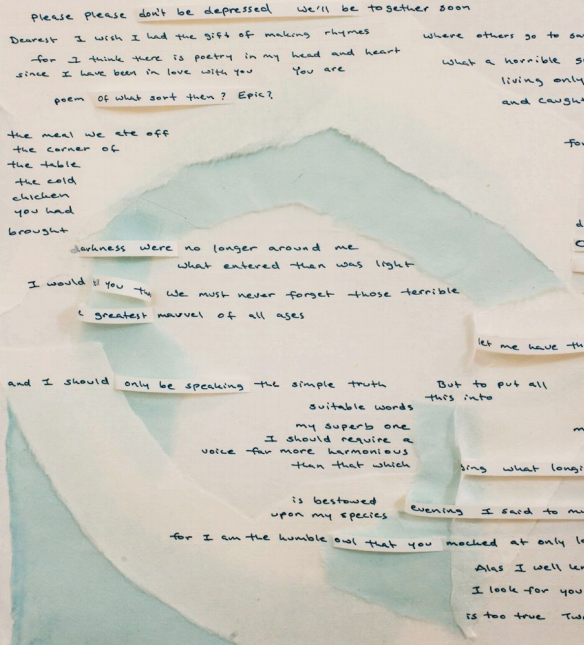 please please don't be depressed we'll be together soon
Dearest I wish I had the gift of making rhymes
where others go to
for I think there is poetry in my head and heart
since I have been in love with you You are
what a horrible
living only
poem of what sort then? Epic?
and caught
the meal we ate off
the corner of
the table
the cold
chicken
you had
brought
darkness were no longer around me
what entered then was light
I would you we must never forget those terrible
greatest marvel of all ages
let me have
and I should only be speaking the simple truth
But to put all
this into
suitable words
my superb one
I should require a
voice far more harmonious
than that which
what
is bestowed
upon my species
evening I said to
for I am the humble owl that you mocked at only
Alas I well
I look for you
is too true